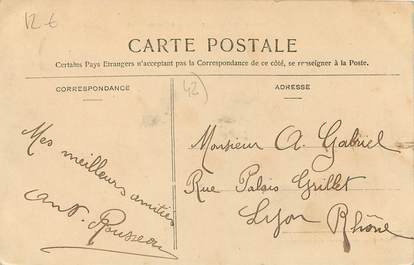 12 €
CARTE POSTALE
Certains Pays Etrangers n'acceptant pas la Correspondance de ce côté, se renseigner à la Poste.
CORRESPONDANCE
Mes meilleurs amitiés
Ant. Rousseau
42
ADRESSE
Monsieur A. Gabriel
Rue Palais Grillet
Lyon Rhône